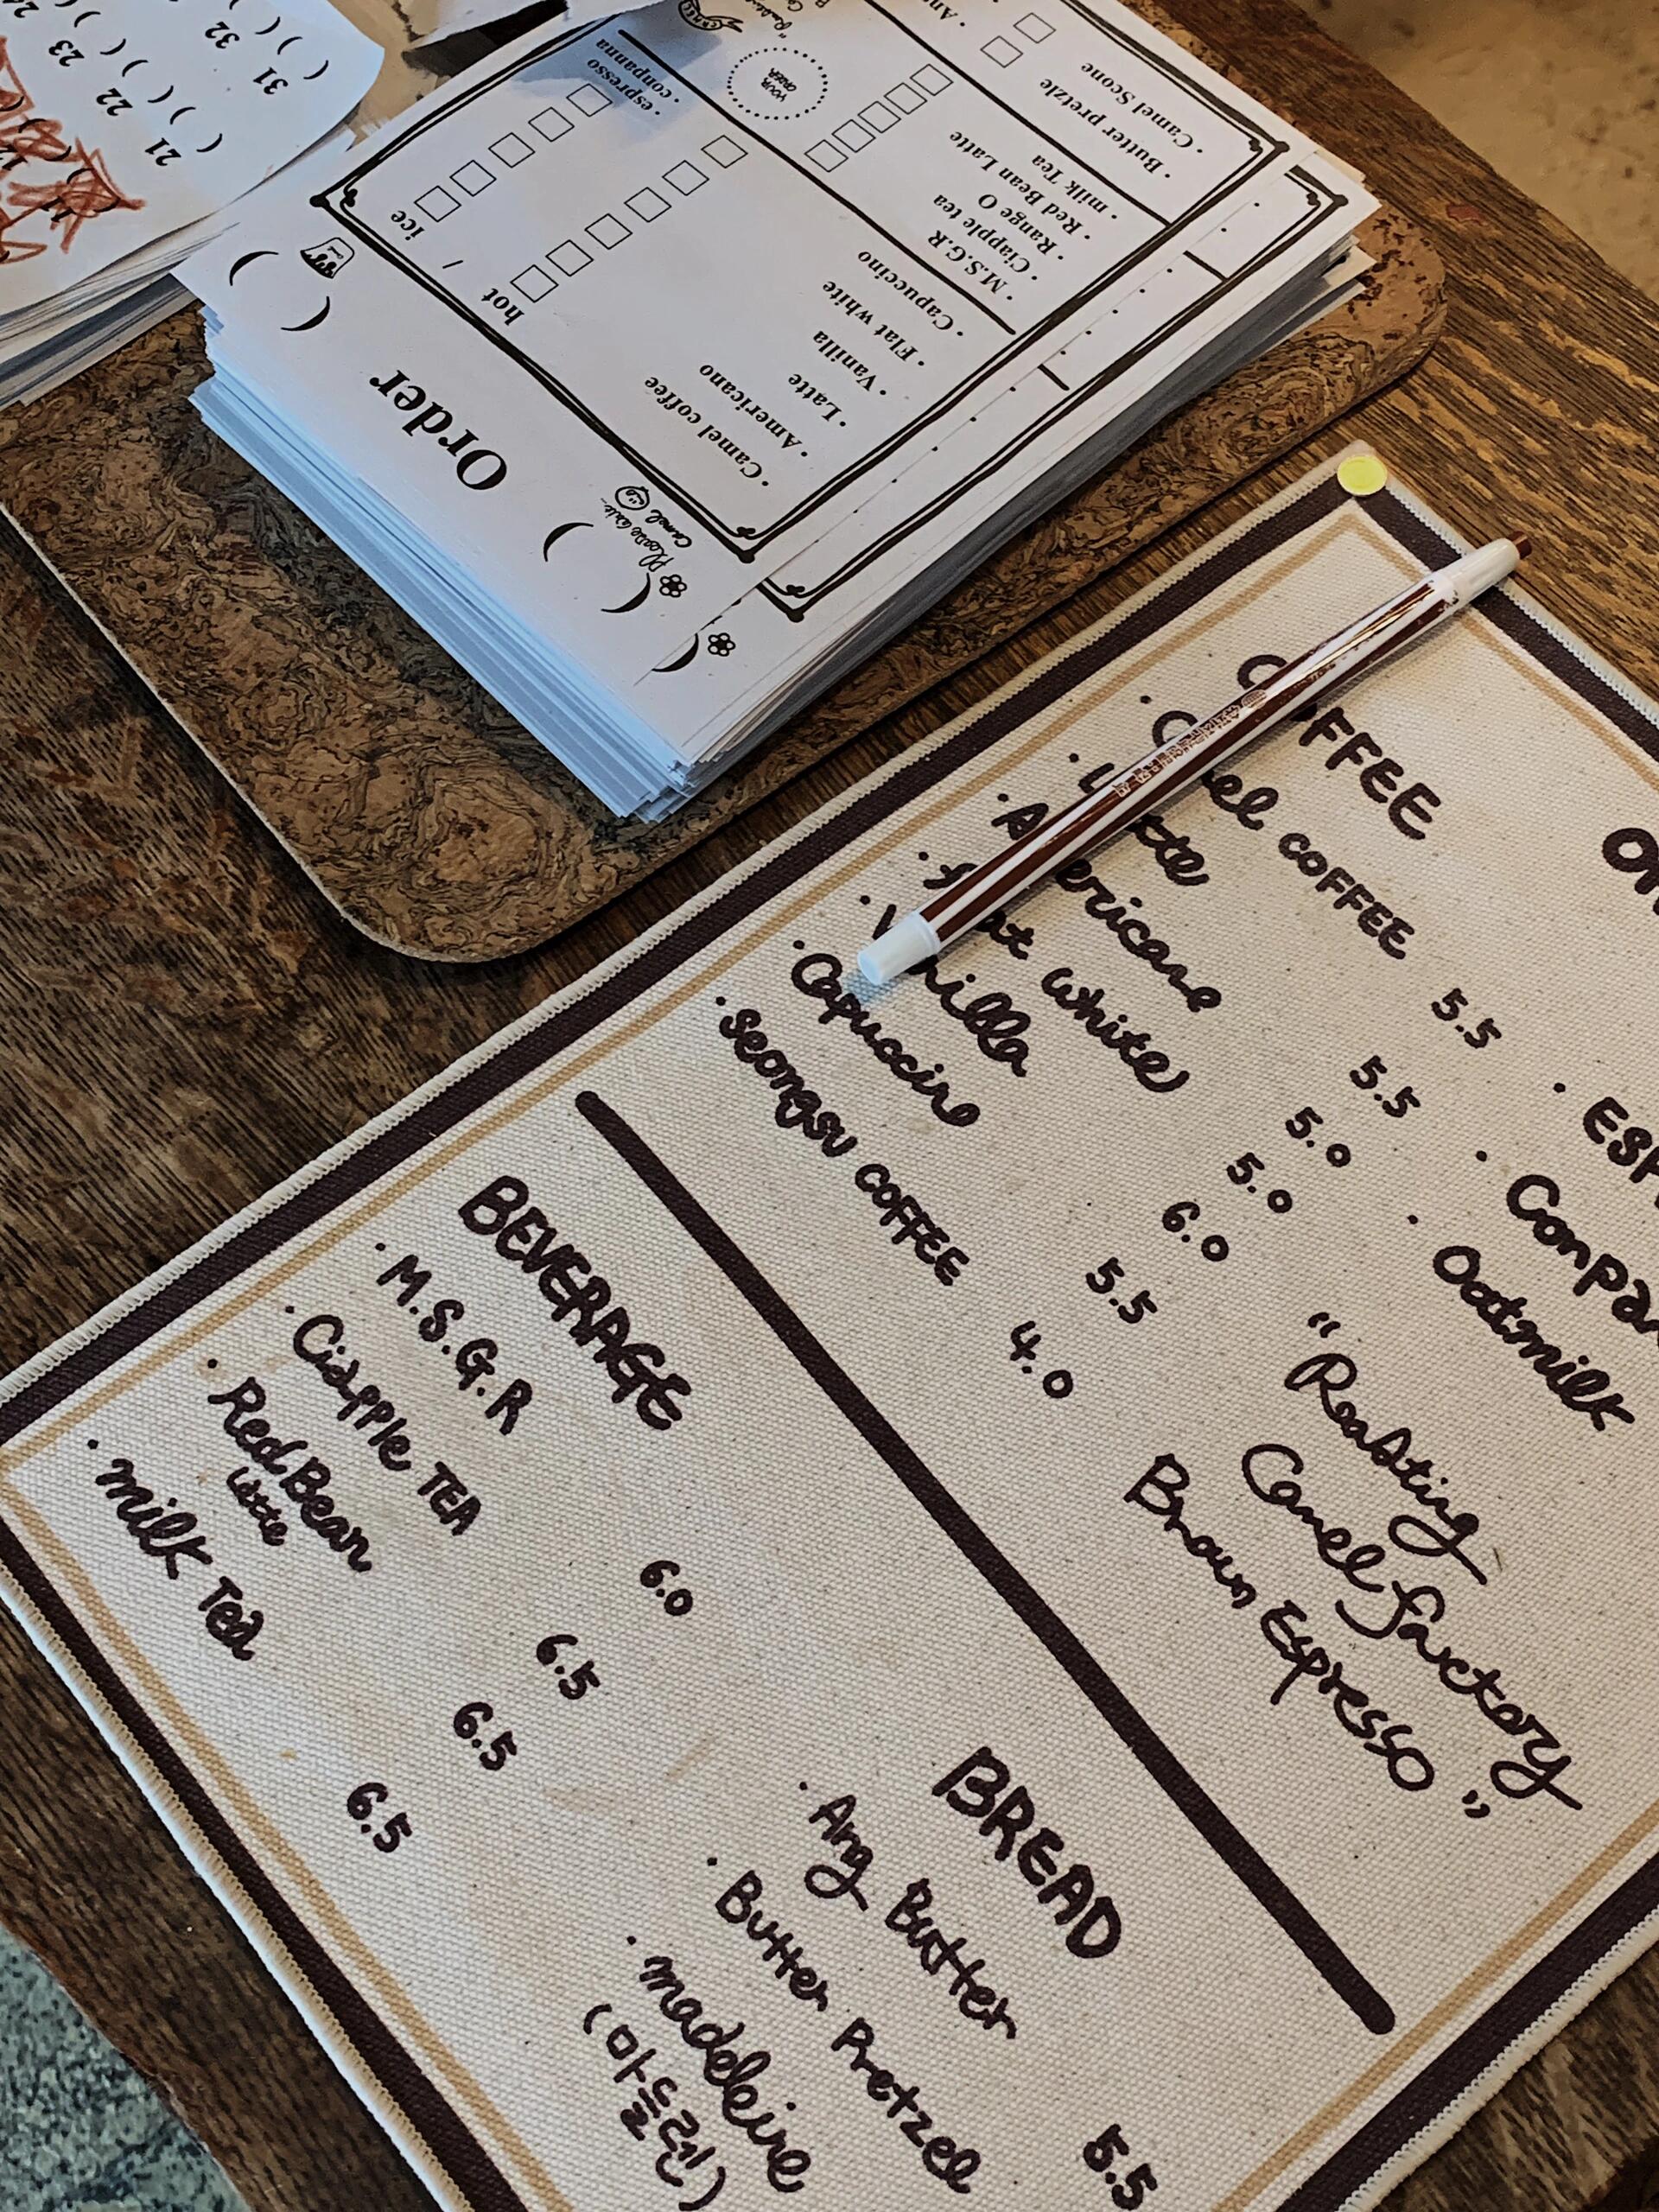 21
22
23
31
32
Order
Please write..
Camel
hot / ice
· Camel coffee
· Americano
· Latte
· Vanilla
· Flat white
· Capuccino
· espresso
· conpanna
· M.S.G.R
· Ciapple tea
· Range O
· Red Bean Latte
· milk Tea
YOUR
ORDER
· Butter pretzle
· Camel Scone
COFFEE
· Camel COFFEE 5.5
· Latte 5.5
· Americano 5.0
· flat white 5.0
· Vanilla 6.0
· Capuccino 5.5
· Seongsu COFFEE 4.0
· Oatmilk
"Roasting
Camel factory
Brown Espresso"
BEVERAGE
· M.S.G.R 6.0
· Ciapple TEA 6.5
· Red Bean Latte 6.5
· milk Tea 6.5
BREAD
· Ang Butter 5.5
· Butter Pretzel
· madeleine
(마들렌)